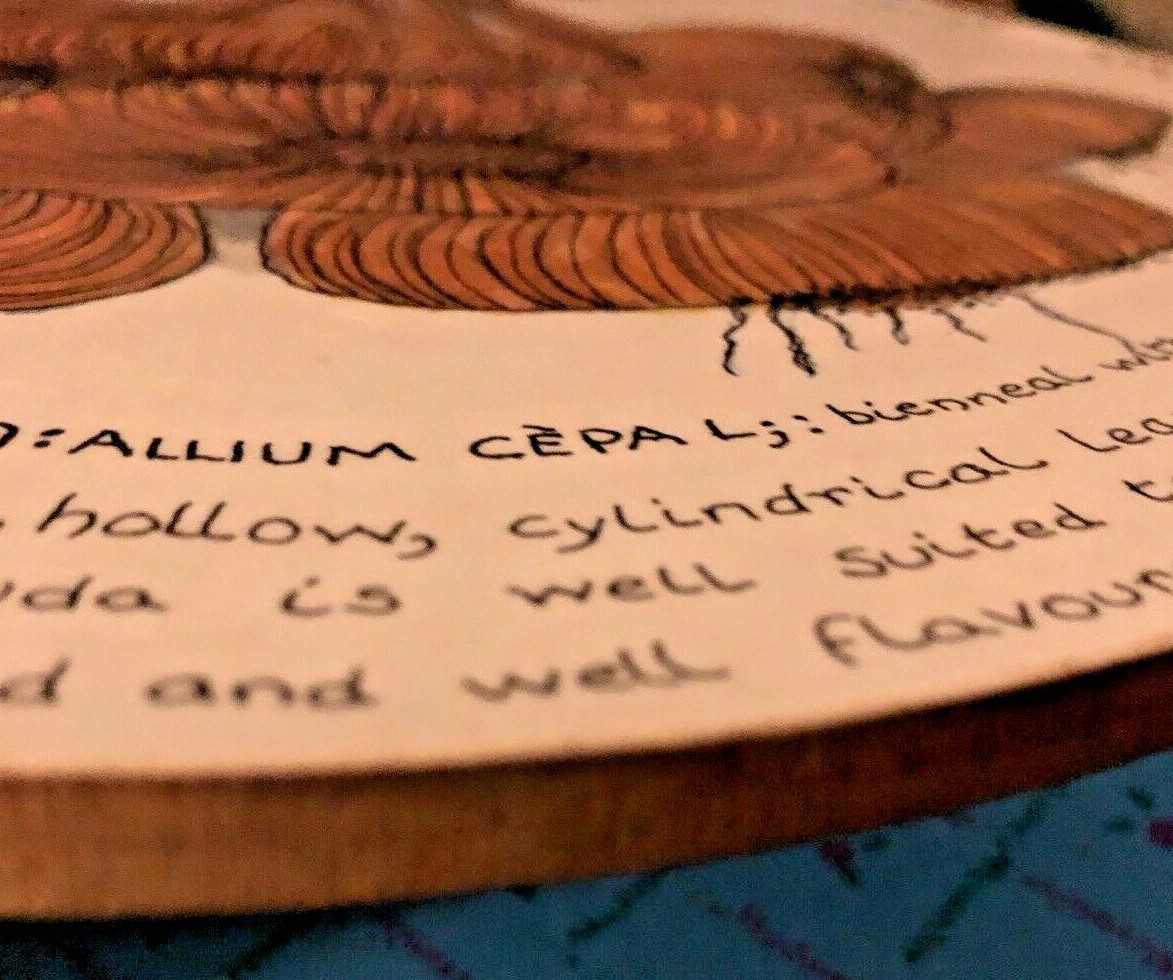 : ALLIUM CĒPA L;: bienneal
hollow, cylindrical
is well suited
and well flavour